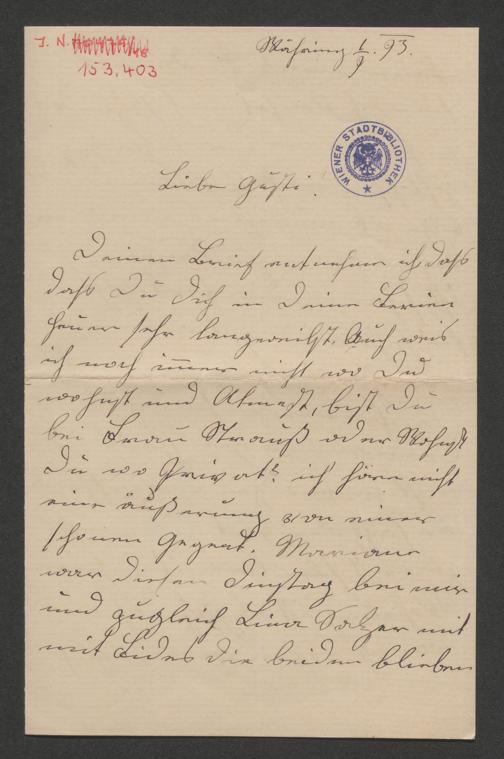 J. N.
153.403
Währing 1/9. 93.
WIENER STADTBIBLIOTHEK
Liebe Gusti.
Deinem Brief entnehme ich, dass
dass Du Dich in Deine Ferien
heuer sehr langweilst. Auch weis
ich noch immer nicht wo Du
wohnst und Atmest, bist Du
bei Frau Strauß oder Wohnst
Du wo Privat? ich höre nicht
eine äußerung von einer
schönen Gegend. Mariane
war diesen Dinstag bei mir
und zugleich Lina Salzer mit
mit die beiden blieben